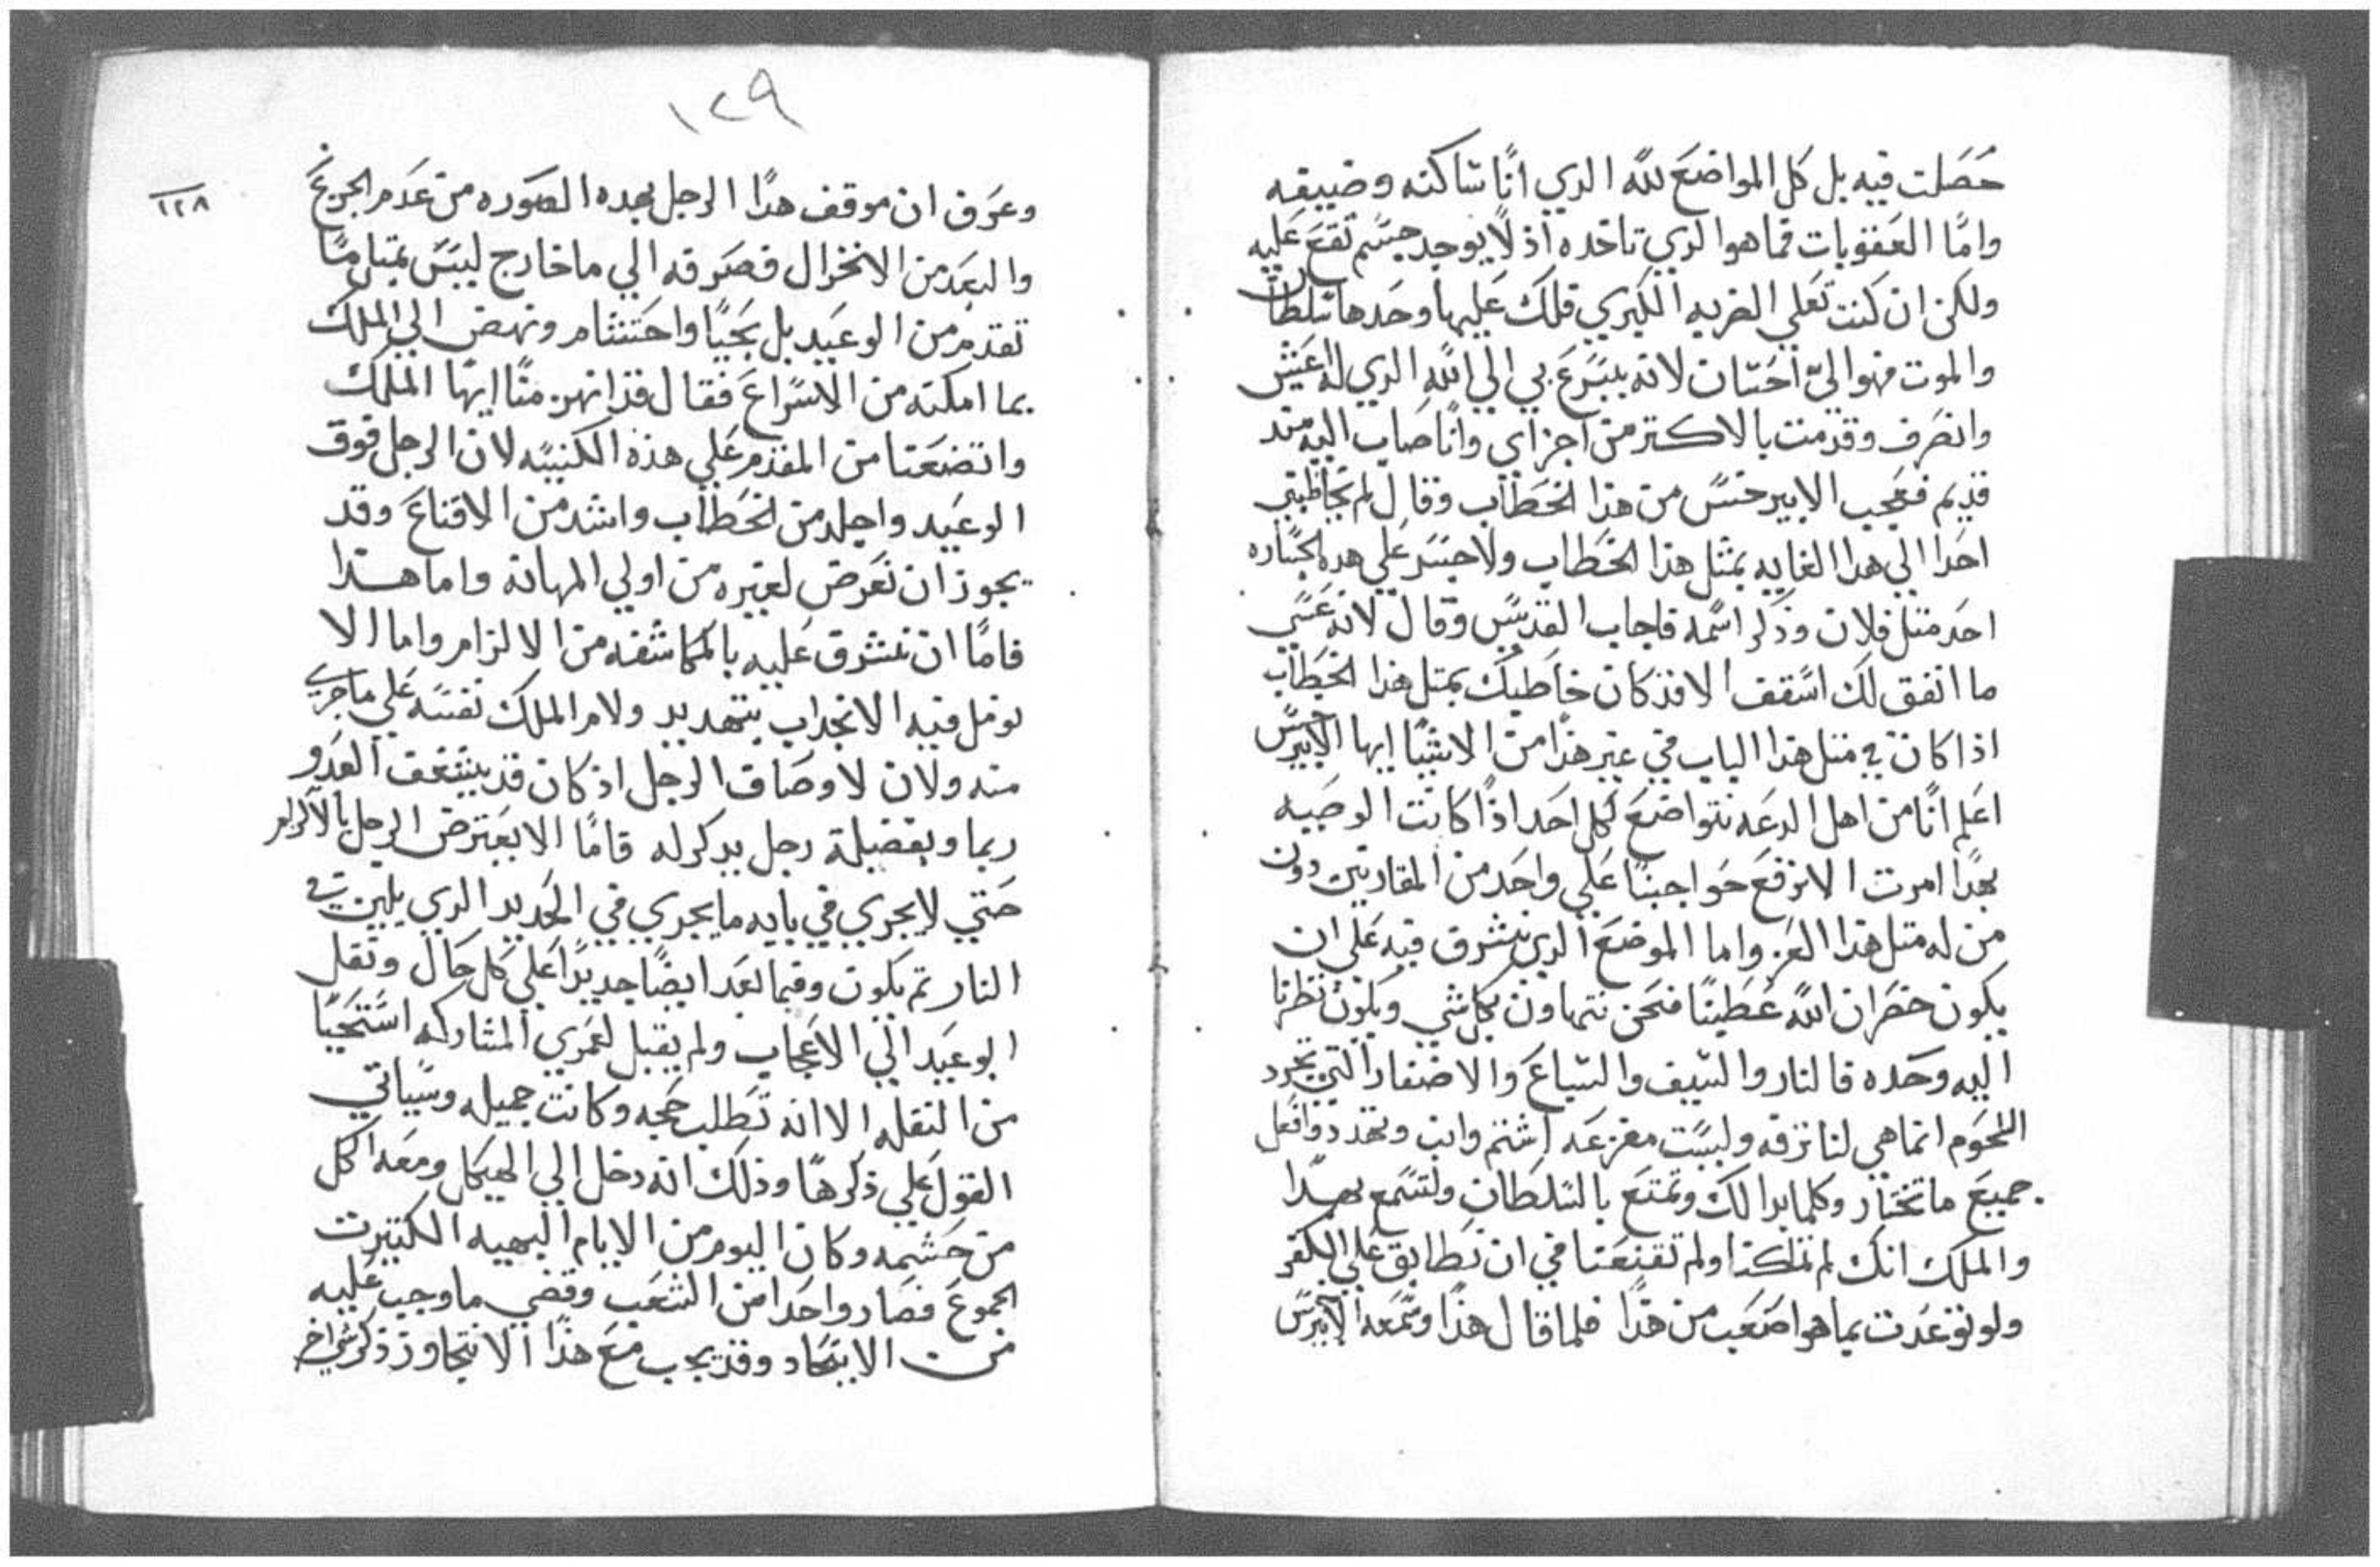 حصلت فيه بل كل المواضع لله الدي انا ساكنه وضييفه
واما العقوبات فما هو الدي تاخده اذ لا يوجد جسم تقع عليه
ولكن ان كنت تعني الضربه الكبري فلك عليها وحدها سلطان
والموت فهو الي احسان لانه يسرع بي الي الله الدي له اعيش
وانصرف وقدمت بالاكتر من اجزاي وانا صاب اليه مند
قديم فعجب الابيرخس من هذا الخطاب وقال لم يخاطبني
احدا الي هدا الغايه بمثل هذا الخطاب ولا جسر علي هده الجساره
احد مثل فلان وذكر اسمه فاجاب القديس وقال لانه عسي
ما اتفق لك اسقف الا فقد كان خاطبك بمثل هذا الخطاب
اذا كان في مثل هذا الباب في غير هذا من الاشيا ايها الابيرخس
اعلم انا من اهل الدعه نتواضع لكل احد اذا كانت الوصيه
بهدا امرت الا نرفع حواجبنا علي واحد من المقاربين دون
من له مثل هذا العز واما الموضع الدي نشرق فيه علي ان
يكون خصران الله عطينا فنحن نتهاون بكل شي ويكون نظرنا
اليه وحده فالنار والسيف والسباع والاضفار التي تجرد
اللحوم انما هي لنا نزفه وليست مفزعه اشتم وانب وتهدد وافعل
جميع ما تختار وكلما بدا لك وتمتع بالسلطان ولتسمع بهدا
والملك انك لم تملكنا ولم تقنعنا في ان نطابق علي الكفر
ولو توعدت بما هو اصعب من هذا فلما قال هذا وسمعه الابيرخس
١٢٩
١٢٨
وعرف ان موقف هدا الرجل بهده الصوره من عدم الجزع
والبعد من الانخزال فصرفه الي ما خارج ليس بمثل ما
تقدم من الوعيد بل بحيا واحتشام ونهض الي الملك
بما امكنه من الاسراع فقال قد انهزمنا ايها الملك
واتضعنا من المقدم علي هذه الكنيسه لان الرجل فوق
الوعيد واجلد من الخطاب واشد من الاقناع وقد
يجوز ان تعرض لغيره من اولي المهانه واما هذا
فاما ان نشرق عليه بالمكاشفه من الالزام واما الا
نومل فيه الانجداب بتهديد ولام الملك نفسه علي ما جري
منه ولان لاوصاف الرجل اذ كان قد يشغف العدو
ربما وبفضيلة رجل يدكر له فاما الا يعترض الرجل بالالزام
حتي لا يجري في بابه ما يجري في الحديد الدي يلين في
النار ثم يكون وفيما بعد ايضا حديدا علي كل حال ونقل
الوعيد الي الاعجاب ولم يقبل لعمري المشاركه استحيا
من النقله الا انه تطلب حجه وكانت جميله وسياتي
القول علي ذكرها وذلك انه دخل الي الهيكل ومعه اكل
من حشمه وكان اليوم من الايام البهيه الكتيرت
الجموع فصار واحدا من الشعب وقضي ما وجب عليه
من الاتحاد وقد يجب مع هذا الا نتجاوز ذكر شي اخر